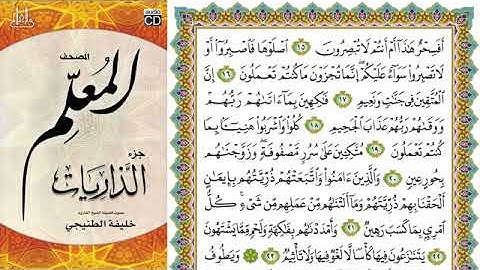 audio
CD
المصحف
المعلم
جزء
الذاريات
خليفة الطنيجي
أَفَسِحْرٌ هَٰذَا أَمْ أَنتُمْ لَا تُبْصِرُونَ ١٥ ٱصْلَوْهَا فَٱصْبِرُوٓا۟ أَوْ
لَا تَصْبِرُوا۟ سَوَآءٌ عَلَيْكُمْ إِنَّمَا تُجْزَوْنَ مَا كُنتُمْ تَعْمَلُونَ ١٦ إِنَّ
ٱلْمُتَّقِينَ فِى جَنَّٰتٍ وَنَعِيمٍ ١٧ فَٰكِهِينَ بِمَآ ءَاتَىٰهُمْ رَبُّهُمْ
وَوَقَىٰهُمْ رَبُّهُمْ عَذَابَ ٱلْجَحِيمِ ١٨ كُلُوا۟ وَٱشْرَبُوا۟ هَنِيٓـًٔۢا بِمَا
كُنتُمْ تَعْمَلُونَ ١٩ مُتَّكِـِٔينَ عَلَىٰ سُرُرٍ مَّصْفُوفَةٍ وَزَوَّجْنَٰهُم
بِحُورٍ عِينٍ ٢٠ وَٱلَّذِينَ ءَامَنُوا۟ وَٱتَّبَعَتْهُمْ ذُرِّيَّتُهُم بِإِيمَٰنٍ
أَلْحَقْنَا بِهِمْ ذُرِّيَّتَهُمْ وَمَآ أَلَتْنَٰهُم مِّنْ عَمَلِهِم مِّن شَىْءٍ كُلُّ
ٱمْرِئٍۭ بِمَا كَسَبَ رَهِينٌ ٢١ وَأَمْدَدْنَٰهُم بِفَٰكِهَةٍ وَلَحْمٍ مِّمَّا يَشْتَهُونَ
٢٢ يَتَنَٰزَعُونَ فِيهَا كَأْسًا لَّا لَغْوٌ فِيهَا وَلَا تَأْثِيمٌ ٢٣ وَيَطُوفُ